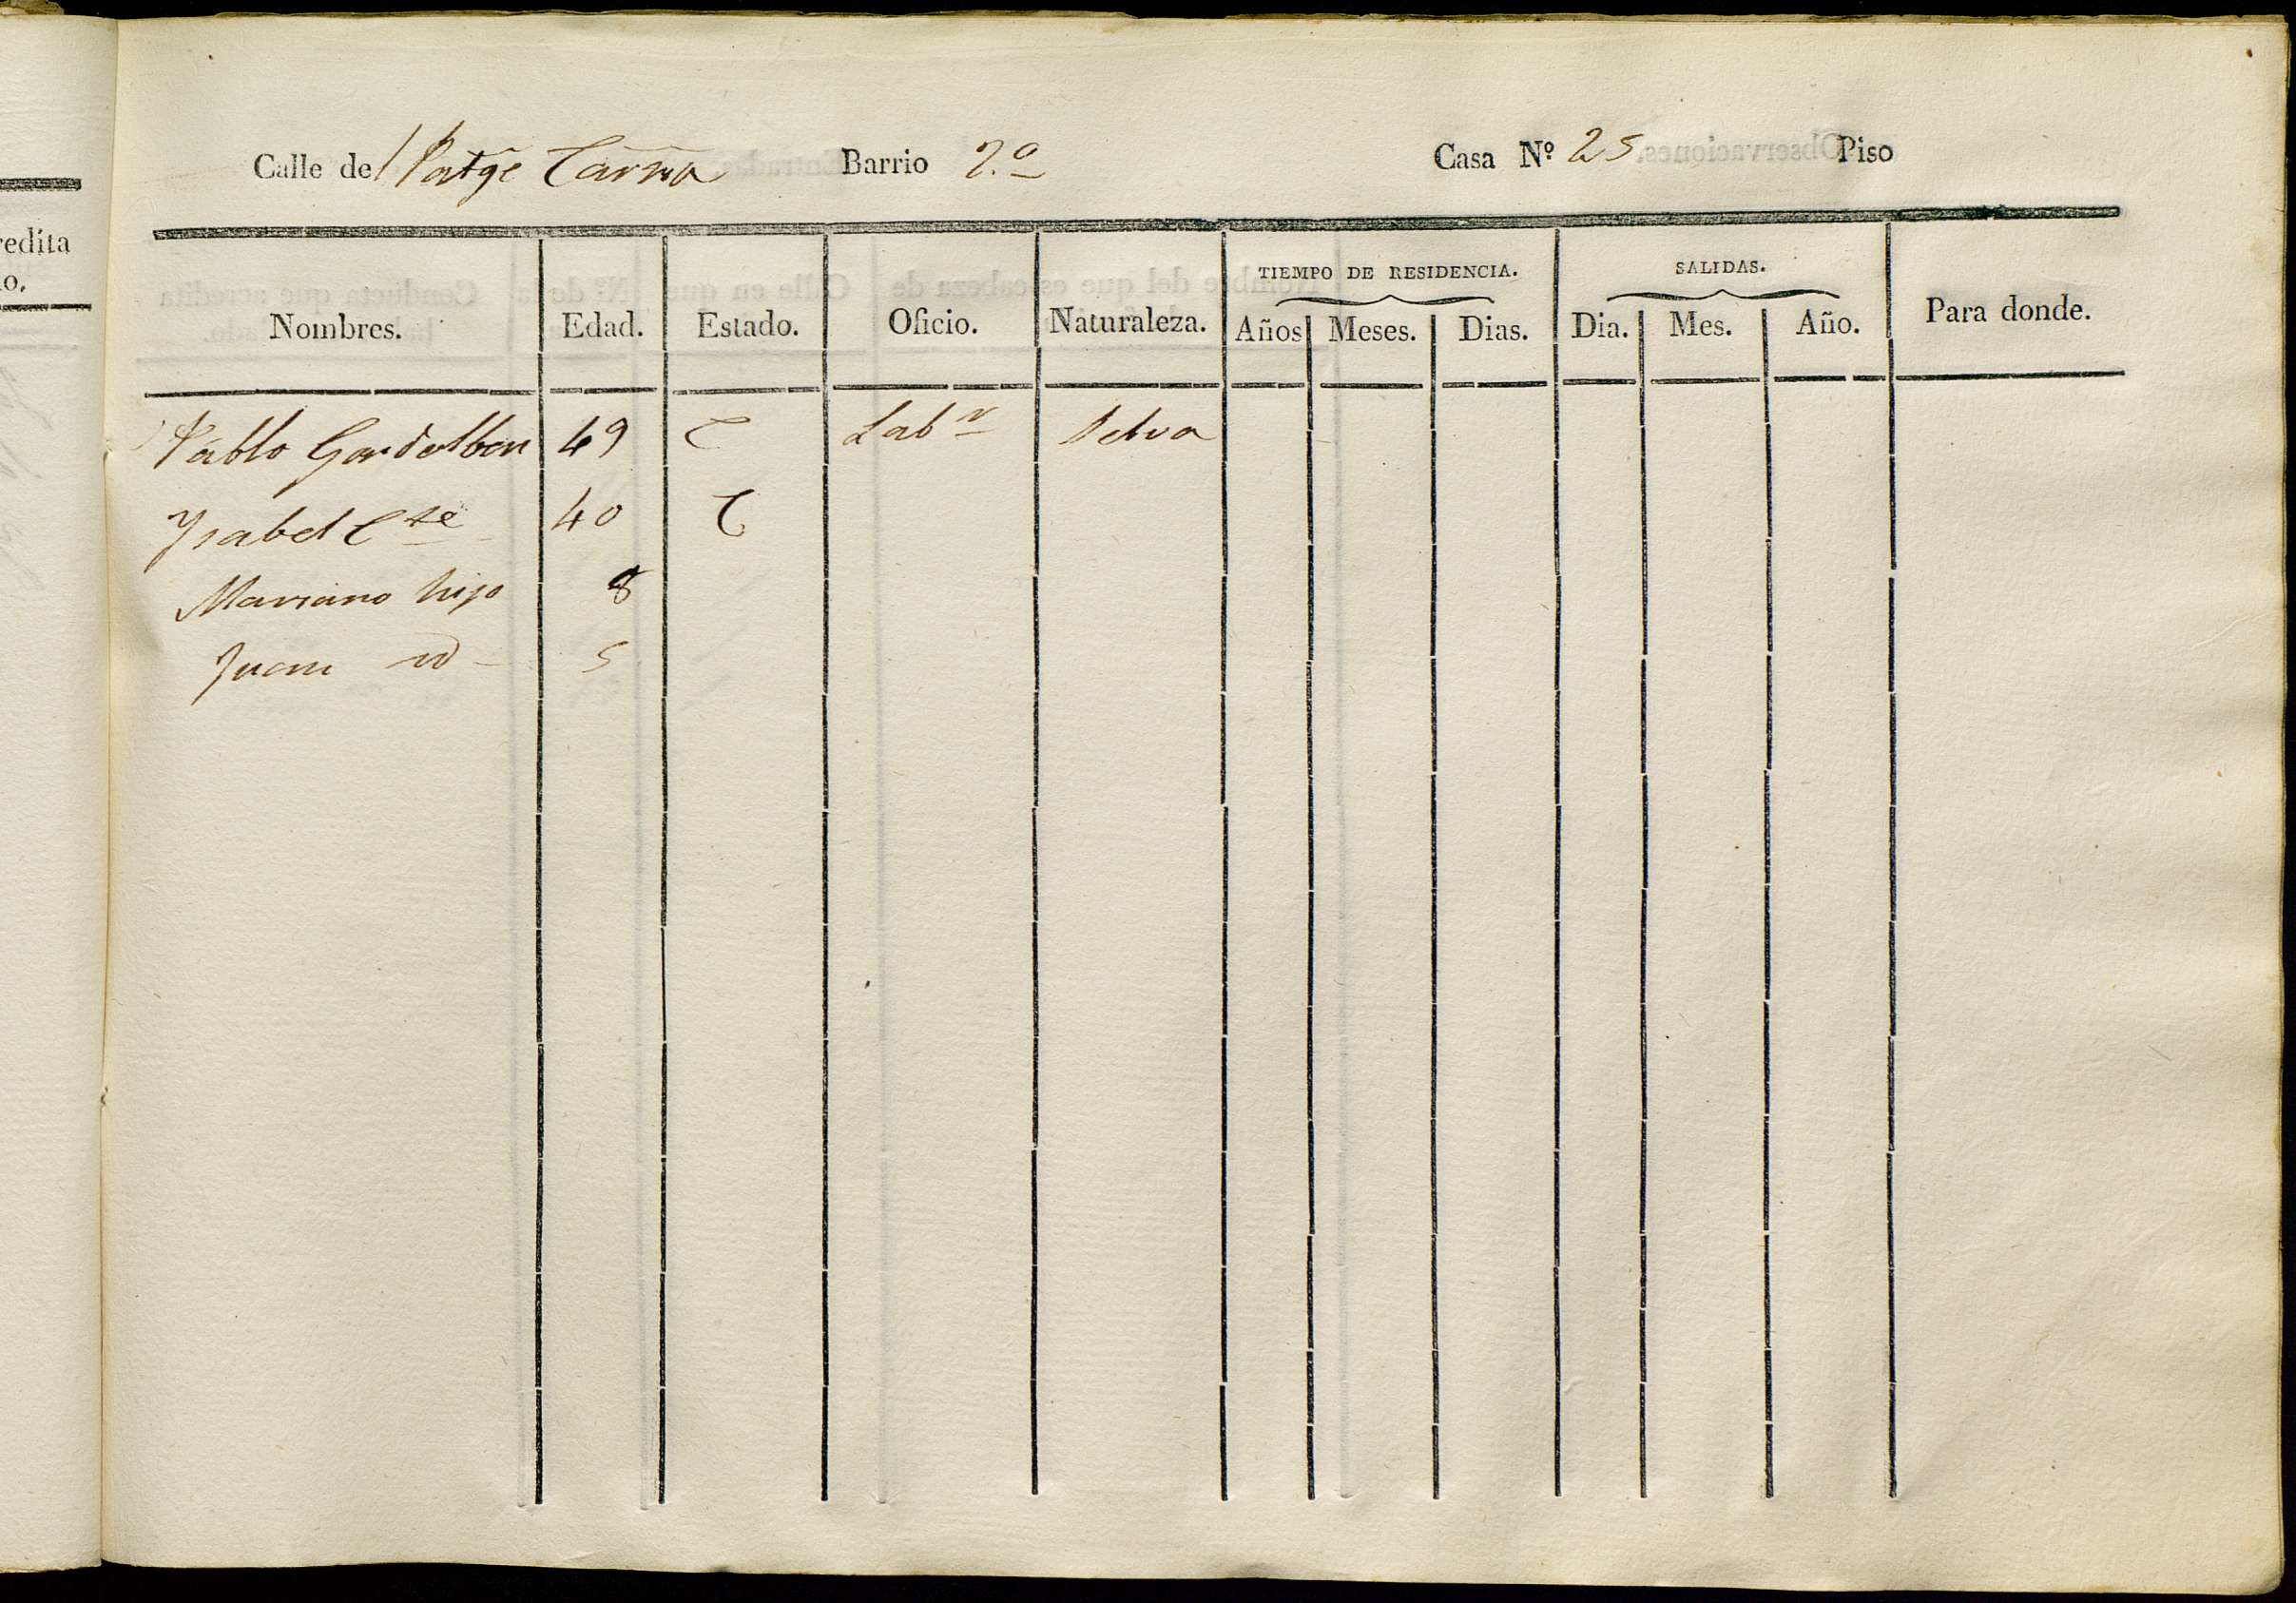 redita
o.
Calle del Patge Carma Barrio 2.º Casa Nº 25 Piso
TIEMPO DE RESIDENCIA. SALIDAS.
Nombres. Edad. Estado. Oficio. Naturaleza. Años Meses. Dias. Dia. Mes. Año. Para donde.
Pablo 49 C Labr Selva
Ysabel Cte 40 C
Mariano hijo 8
Juan id 5